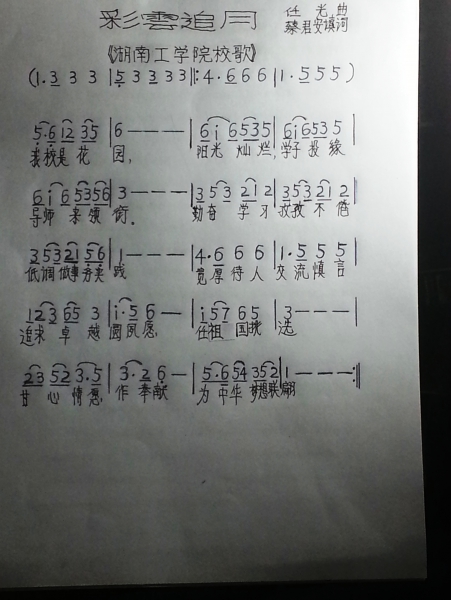 彩雲追月
任光曲
君安填词
《湖南工学院校歌》
(1.3 3 3 | 5 3 3 3 3 |: 4.6 6 6 | 1.5 5 5 )
5.6 12 35 | 6 - - - | 6i 6535 | 6i6535 |
我校是花园, 阳光灿烂,学子
6i6 535356 | 3 - - - | 353 212 | 353212 |
导师亲领衔. 勤奋学习孜孜不倦
353 21 56 | 1 - - - | 4.6 6 6 | 1.5 5 5 |
低调做事务实践 宽厚待人交流慎言
123 65 3 | i.5 6 - | i57 65 | 3 - - - |
追求卓越圆夙愿, 任祖国挑选
23 52 3.5 | 3.2 6 | 5.6 54 352 | 1 - - - :||
甘心情愿,作奉献 为中华梦想联翩